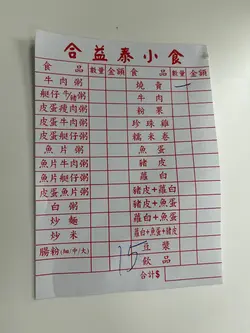 合益泰小食
食品 數量 金額 食品 數量 金額
牛肉粥 燒賣 一
艇仔牛/豬粥 牛肉
皮蛋瘦肉粥 粉果
皮蛋牛肉粥 珍珠雞
皮蛋艇仔粥 糯米卷
魚片粥 魚蛋
魚片牛肉粥 豬皮
魚片艇仔粥 蘿白
皮蛋魚片粥 豬皮+蘿白
白粥 豬皮+魚蛋
炒麵 蘿白+魚蛋
炒米 蘿白+魚蛋+豬皮
腸粉(細/中/大) 15 豆漿
飲品
合計$